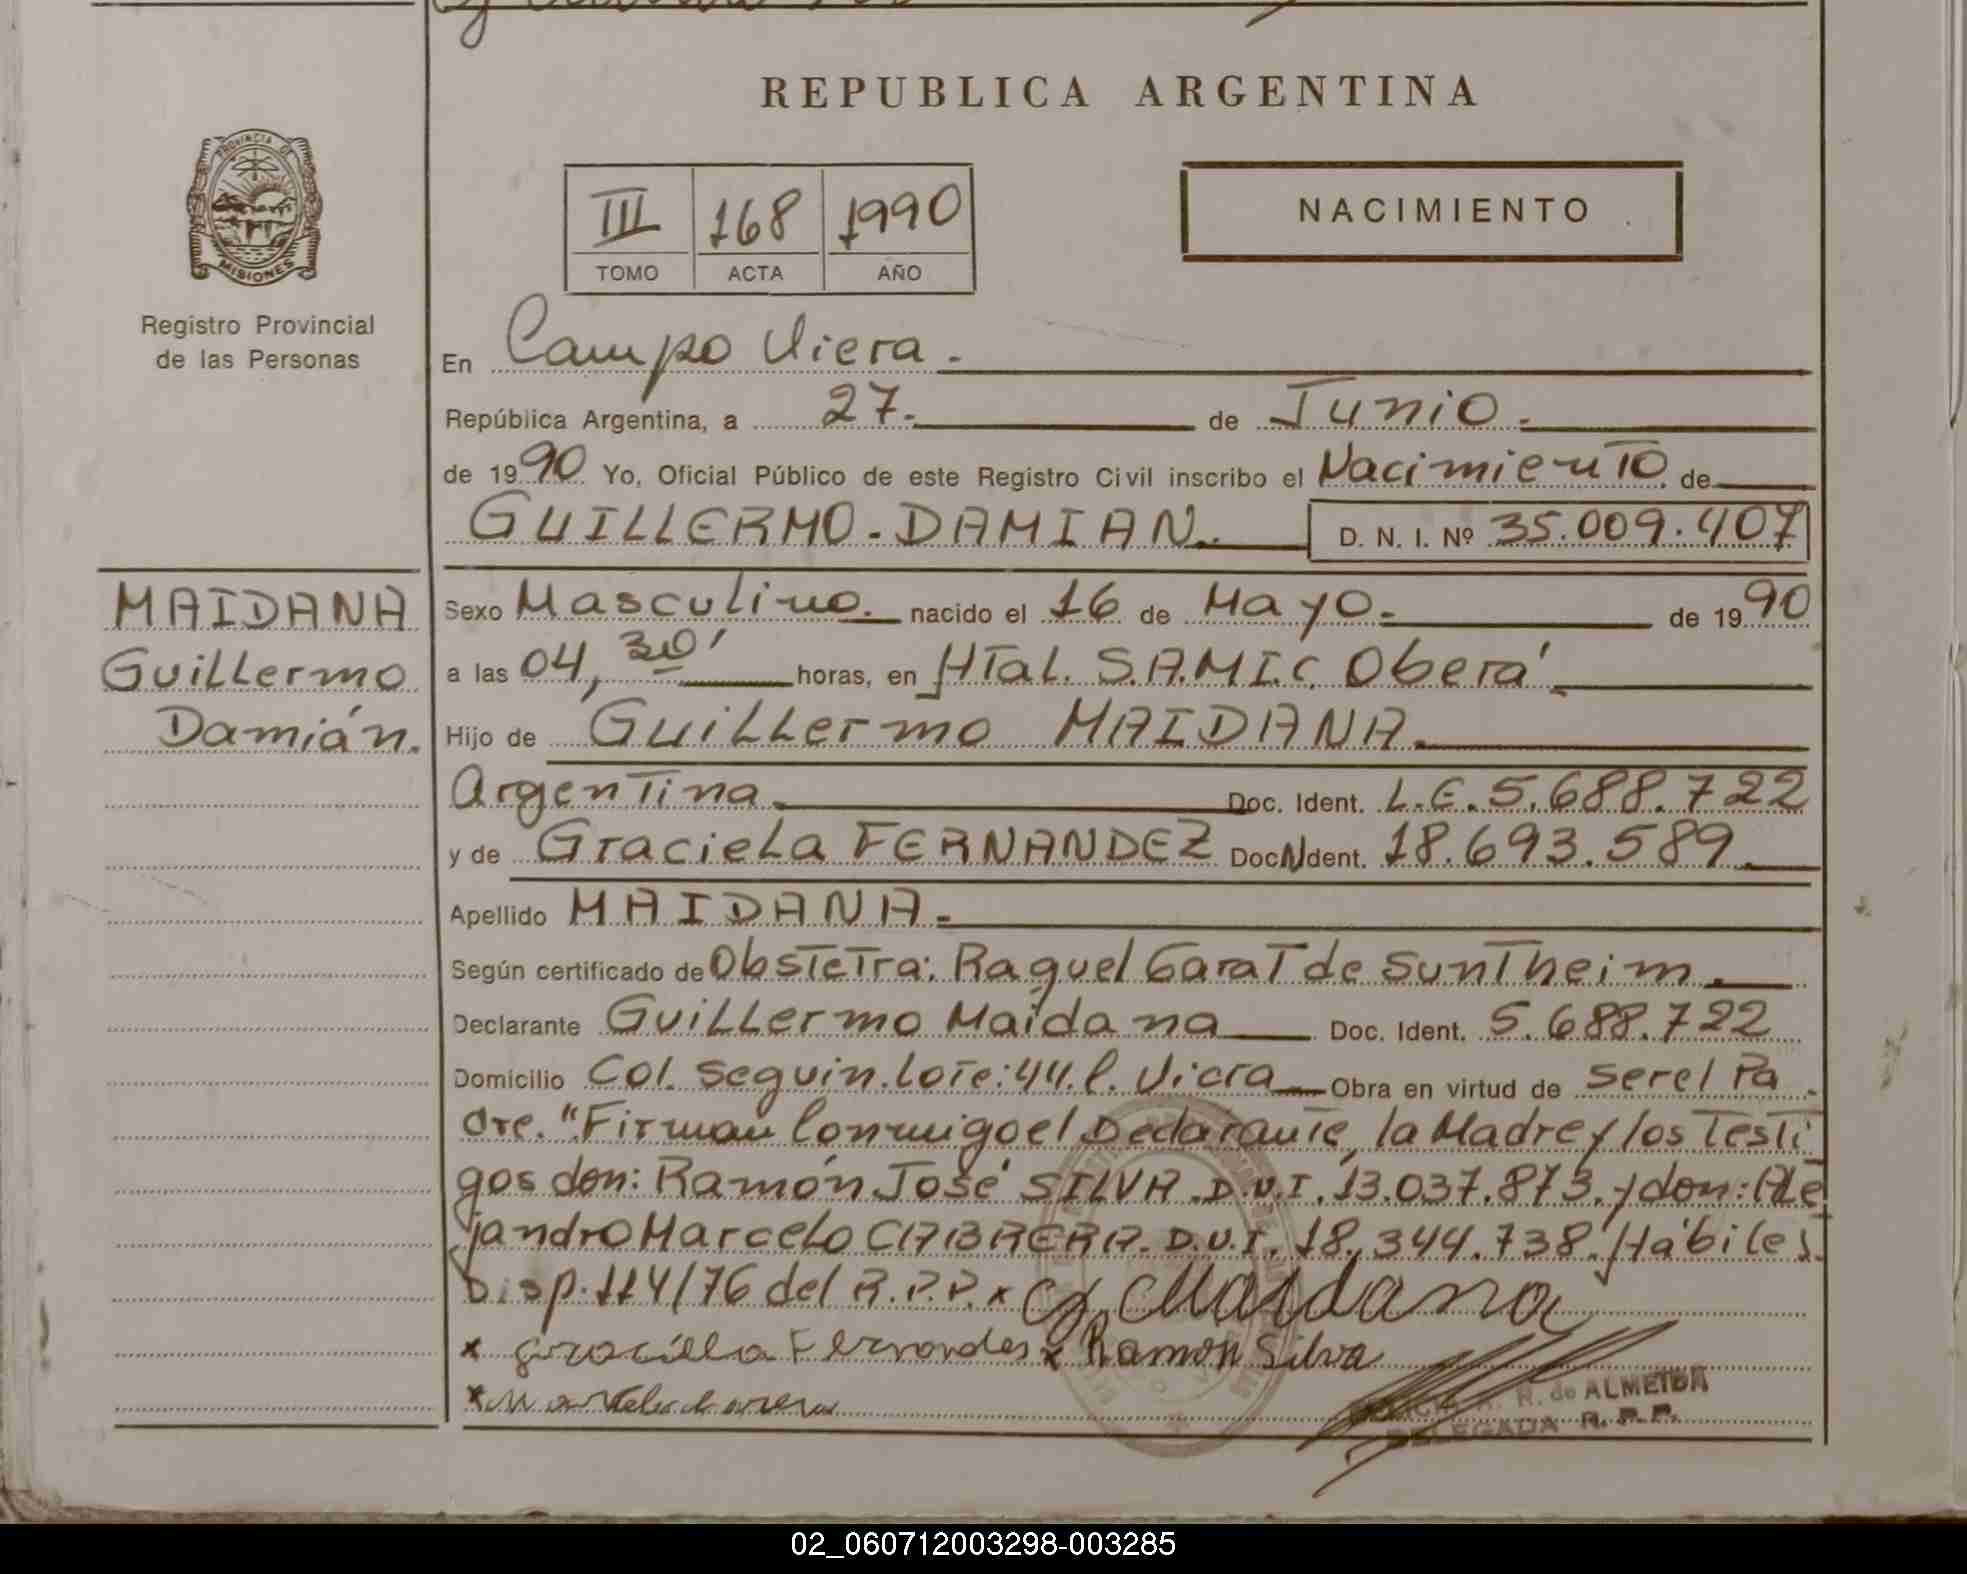 REPUBLICA ARGENTINA
PROVINCIA DE
MISIONES
Registro Provincial
de las Personas
III 168 1990
TOMO ACTA AÑO
NACIMIENTO
En Campo Viera.
República Argentina, a 27. de Junio.
de 1990 Yo, Oficial Público de este Registro Civil inscribo el Nacimiento de
GUILLERMO-DAMIAN. D. N. I. Nº 35.009.407
MAIDANA
Guillermo
Damián.
Sexo Masculino. nacido el 16 de Mayo. de 1990
a las 04,30' horas, en HTal. S.A.M.I.C. Oberá
Hijo de Guillermo MAIDANA.
Argentina Doc. Ident. L.E. 5.688.722
y de Graciela FERNANDEZ Doc. Ident. 18.693.589
Apellido MAIDANA.
Según certificado de Obstetra: Raquel Garat de Suntheim.
Declarante Guillermo Maidana Doc. Ident. 5.688.722
Domicilio Col. Seguin. Lote: 44. C. Viera Obra en virtud de ser el Pa
dre. "Firman Conmigo el Declarante, la Madre y los Testi
gos don: Ramón José SILVA. D.N.I. 13.037.873. y don: Ale
jandro Marcelo CABRERA. D.N.I. 18.344.738. Hábiles
Disp. 114/76 del R.P.P. x G. Maidana
x Gracíela Fernandes x Ramon Silva
x
R. de ALMEIDA
DELEGADA R. P. P.
02_060712003298-003285